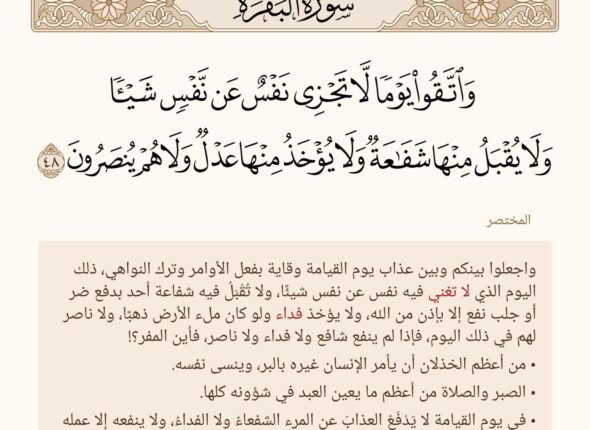 سورة البقرة
وَٱتَّقُوا۟ يَوْمًا لَّا تَجْزِى نَفْسٌ عَن نَّفْسٍ شَيْـًٔا
وَلَا يُقْبَلُ مِنْهَا شَفَـٰعَةٌ وَلَا يُؤْخَذُ مِنْهَا عَدْلٌ وَلَا هُمْ يُنصَرُونَ ٤٨
المختصر
واجعلوا بينكم وبين عذاب يوم القيامة وقاية بفعل الأوامر وترك النواهي، ذلك
اليوم الذي لا تغني فيه نفس عن نفس شيئًا، ولا تُقْبلُ فيه شفاعة أحد بدفع ضر
أو جلب نفع إلا بإذن من الله، ولا يؤخذ فداء ولو كان ملء الأرض ذهبًا، ولا ناصر
لهم في ذلك اليوم، فإذا لم ينفع شافع ولا فداء ولا ناصر، فأين المفر؟!
• من أعظم الخذلان أن يأمر الإنسان غيره بالبر، وينسى نفسه.
• الصبر والصلاة من أعظم ما يعين العبد في شؤونه كلها.
• في يوم القيامة لا يَدفَعُ العذابَ عن المرء الشفعاءُ ولا الفداءُ، ولا ينفعه إلا عمله